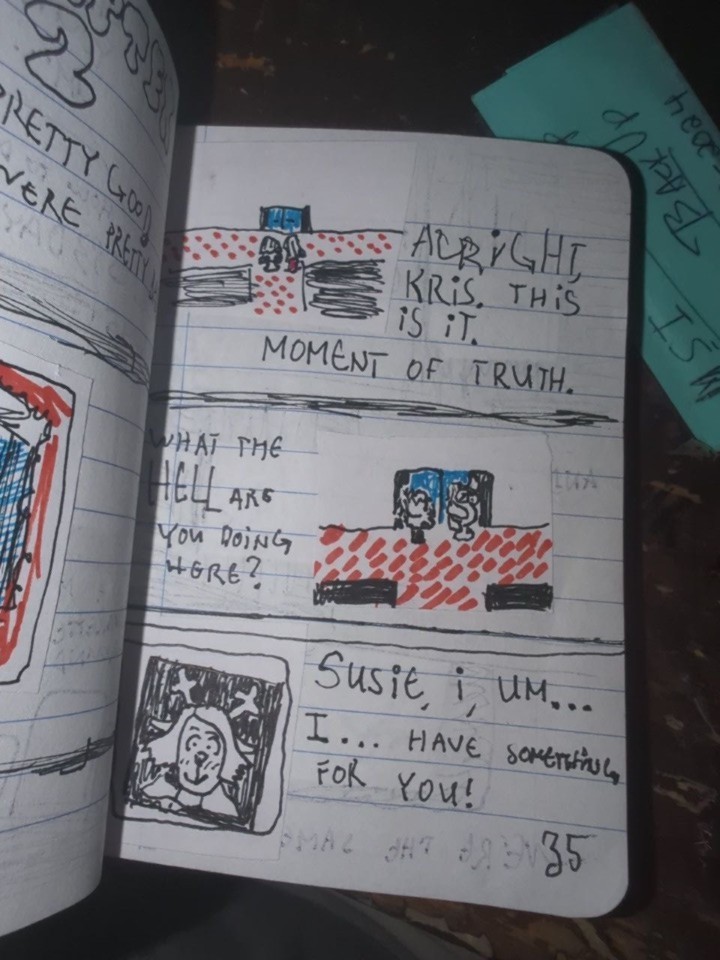 2
PRETTY GOOD
WERE PRETTY
ALRIGHT,
KRIS. THIS
IS IT.
MOMENT OF TRUTH.
WHAT THE
HELL ARE
YOU DOING
HERE?
SUSIE, I, UM...
I... HAVE SOMETHING
FOR YOU!
35
BACK UP